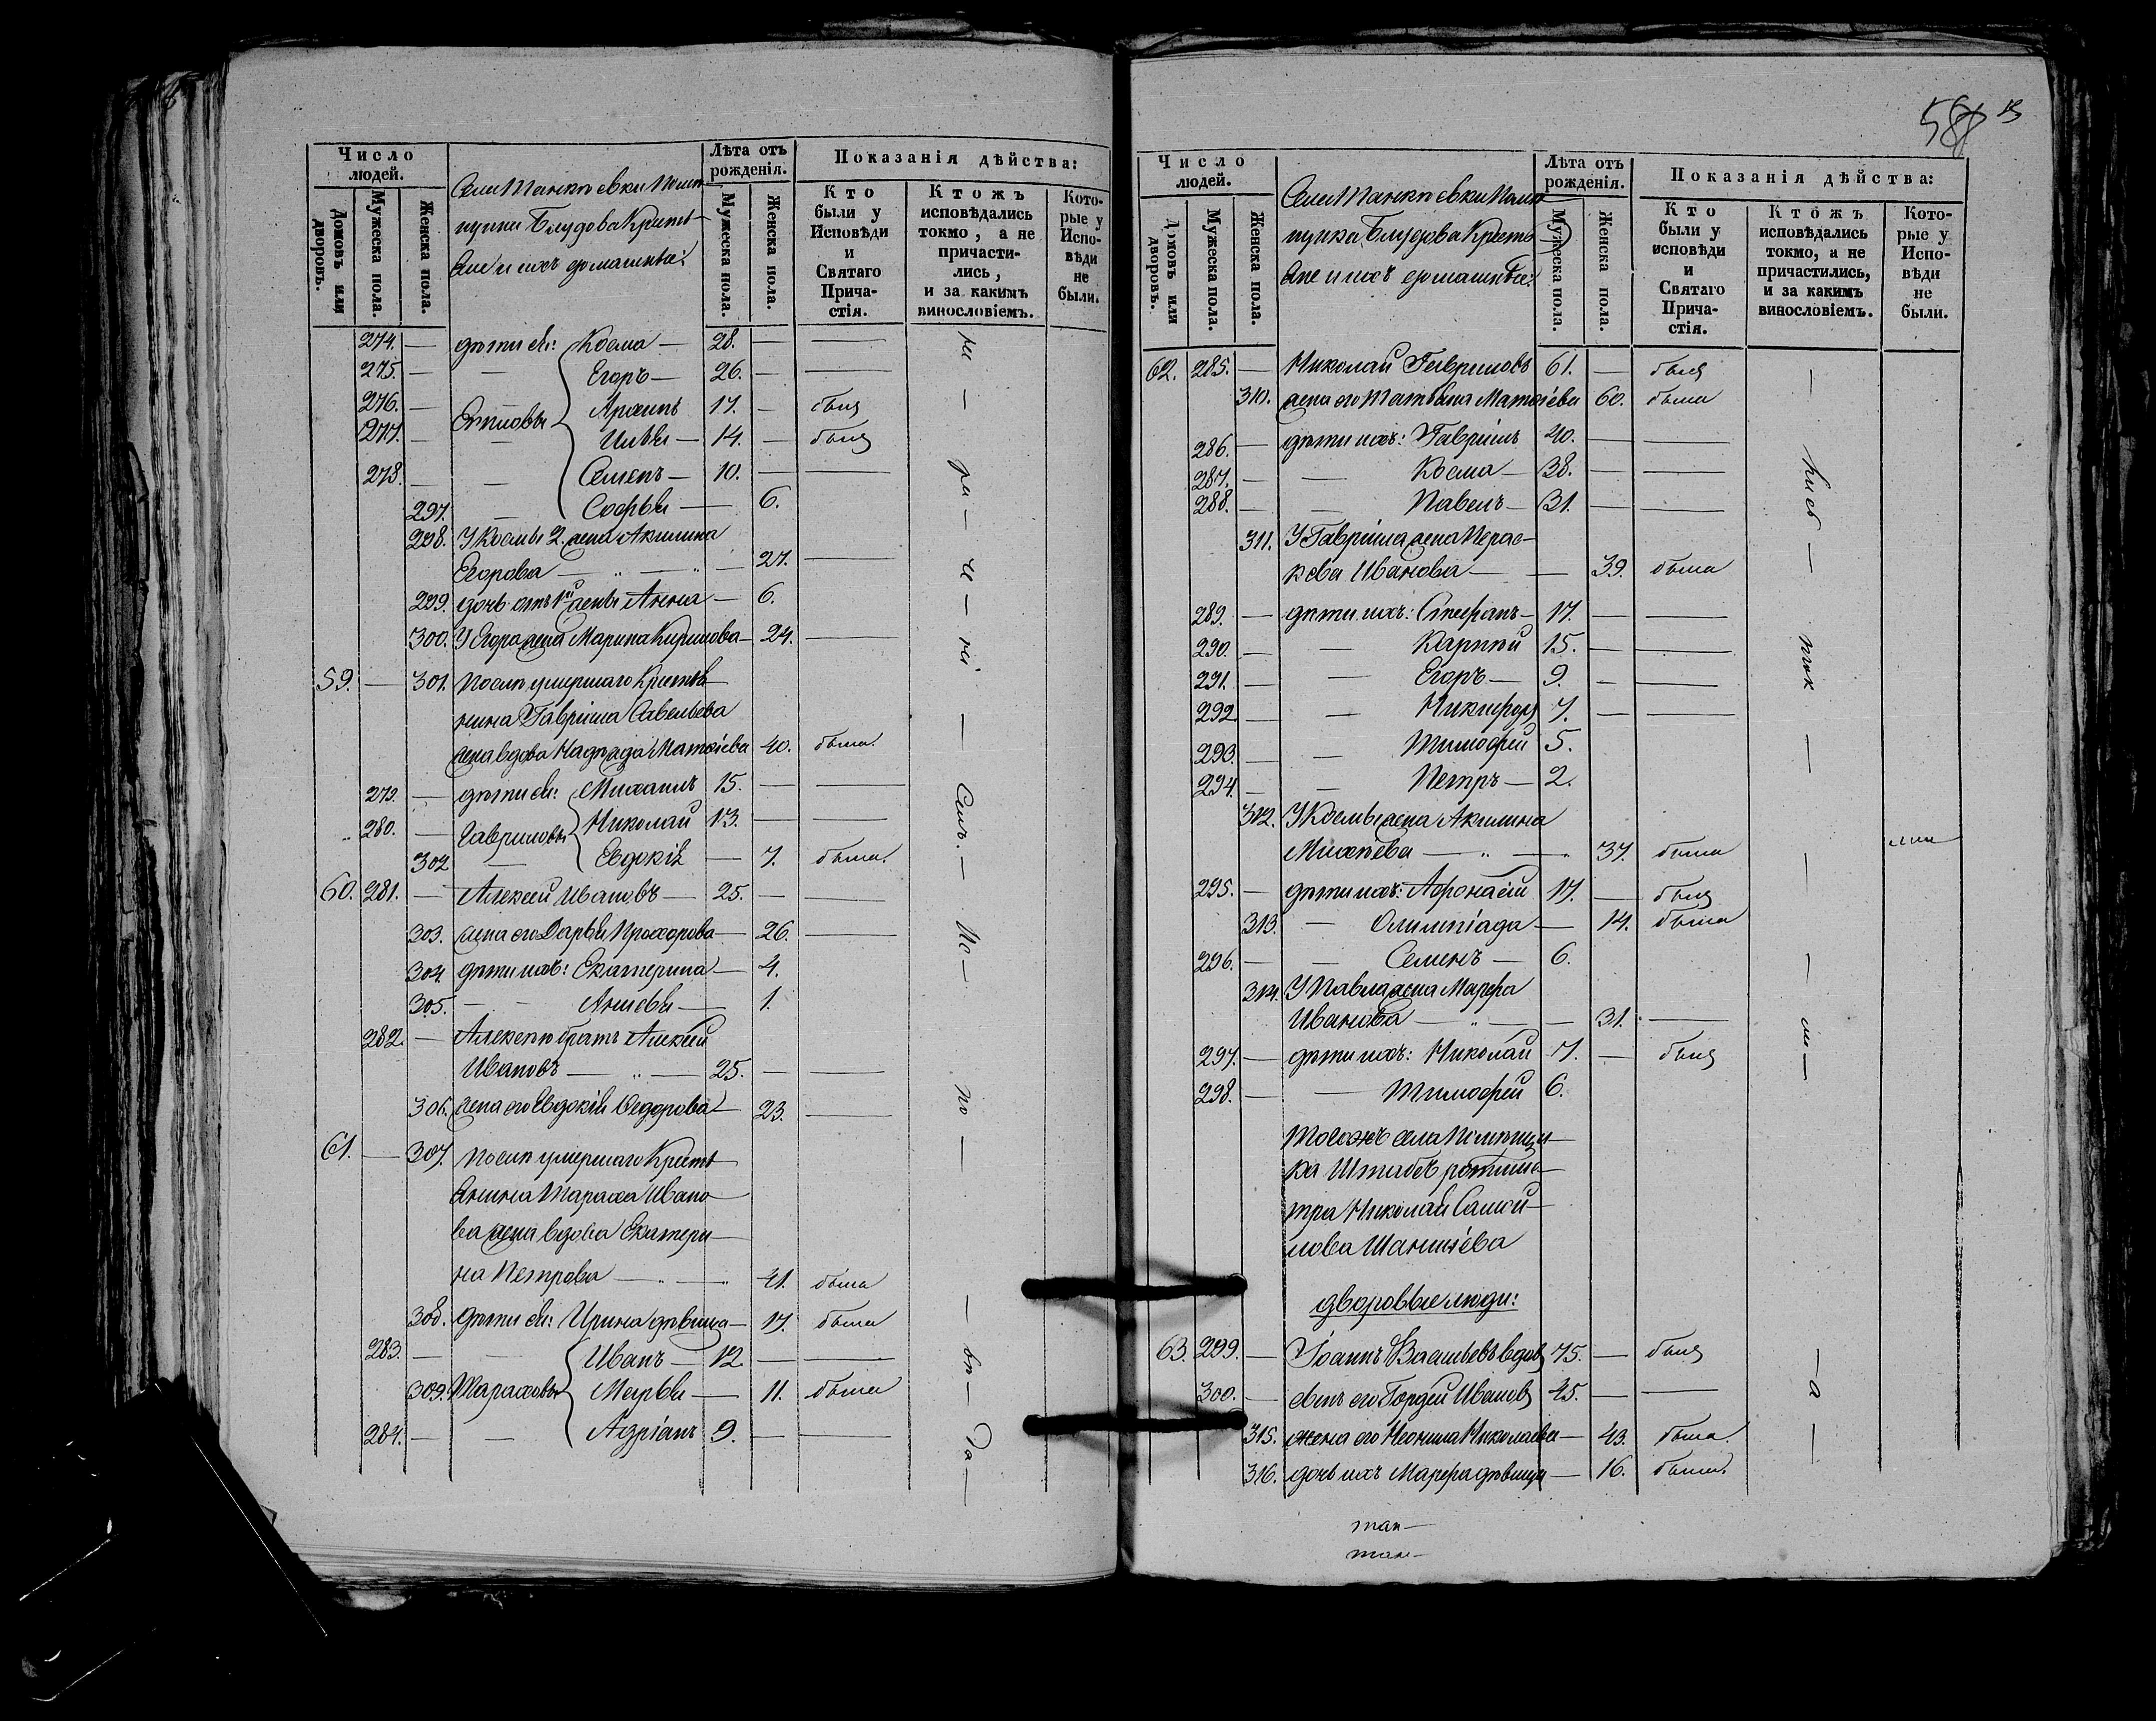 Число людей.
Домовъ или дворовъ.
Мужеска пола.
Женска пола.
Лѣта отъ рожденія.
Мужеска пола.
Женска пола.
Показанія дѣйства:
Кто были у Исповѣди и Святаго Прича-стія.
Ктожъ исповѣдались токмо, а не причасти-лись, и за какимъ винословіемъ.
Кото-рые у Испо-вѣди не были.
Блудова Кресть-
яне и ихъ домашніе:
274. — дѣти ея: Косма — 28. —
275. — — Егоръ — 26. —
276. — Архипъ 17. — былъ
277. — — Илья — 14. — былъ
278. — — Семенъ — 10. —
297. — Софья — 6.
298. У Космы 2. жена Акилина
Егорова — " — " — 27.
299. дочь отъ 1й жены Анна — 6.
300. У Егора жена Марина Кирилова — 24.
59. — 301. Послѣ умершаго Крестья-
нина Гавріила Савельева
жена вдова Надежда Матѳіева 40. была.
279. — дѣти ея: Михаилъ 15. —
280. — Гавриловы Николай 13. —
302 — Евдокія — 7. была.
60. 281. — Алексѣй Ивановъ — 25. —
303. жена его Дарья Прохорова — 26.
304. дѣти ихъ: Екатерина — 4.
305. — — — 1.
282. — Алексѣю братъ Алексѣй
Ивановъ — " — 25. —
306. жена его Евдокія Ѳедорова — 23.
61. — 307. Послѣ умершаго Кресть-
янина Тараха Ивано-
ва жена вдова Екатери-
на Петрова — " — " 41. была
308. дѣти ея: Ирина дѣвица — 17. была
283. — — Иванъ — 12 —
309. Тараховы Марья — 11. была
284. — — Адріанъ 9. —
588
Число людей.
Домовъ или дворовъ.
Мужеска пола.
Женска пола.
Лѣта отъ рожденія.
Мужеска пола.
Женска пола.
Показанія дѣйства:
Кто были у исповѣди и Святаго Прича-стія.
Ктожъ исповѣдались токмо, а не причастились, и за какимъ винословіемъ.
Кото-рые у Испо-вѣди не были.
Блудова Кресть-
яне и ихъ домашніе:
62. 285. — Николай Гавриловъ 61. — былъ
310. жена его Татьяна Матѳіева 60. была
286. — дѣти ихъ: Гавріилъ 40. —
287. — — Косма — 38. —
288. — — Павелъ — 31. —
311. У Гавріила жена Парас-
кева Иванова — — 39. была
289. — дѣти ихъ: Стефанъ — 17. —
290. — — Карпъ 15. —
291. — — Егоръ — 9. —
292 — — Никифоръ 7. —
293. — — Тимофей 5.
294. — — Петръ — 2.
312. У Космы жена Акилина
Михѣева — " — " 37. была
295. — дѣти ихъ: Афонасій 17. — былъ
313. — Олимпіада — 14. была
296. — — Семенъ — 6.
314. У Павла жена Марфа
Иванова — " — — 31. —
297. — дѣти ихъ: Николай 7. — былъ
298. — — Тимофей 6.
Тогожъ села Помѣщи-
ка Штабсъ ротмис-
тра Николая Самой-
лова
дворовые люди:
63. 299. — Іоаннъ Васильевъ вдовъ 75. — былъ
300. — сынъ его Гордѣй Ивановъ 45. —
315. жена его Неонила Николаева — 43. была.
316. дочь ихъ Марфа дѣвица — 16. была.